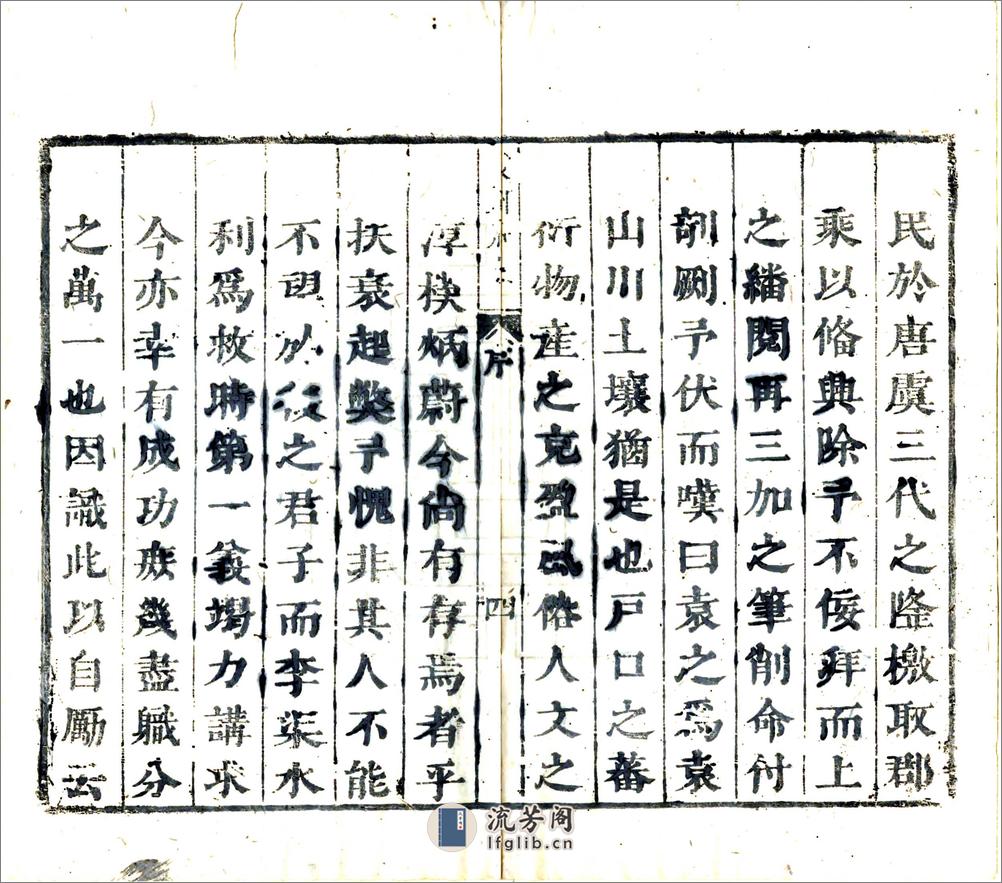 民於唐虞三代之隆檄取郡
乘以脩典除予不佞拜而上
之繙閱再三加之筆削命付
剞劂予伏而嘆曰袁之爲袁
山川土壤猶是也戶口之蕃
衍物產之充盈風俗人文之
序 四
淳樸炳蔚今尚有存焉者乎
扶衰起獘予愧非其人不能
不望於後之君子而李渠水
利爲救時第一義竭力講求
今亦幸有成功庶幾盡職分
之萬一也因識此以自勵云
流芳阁
lfglib.cn